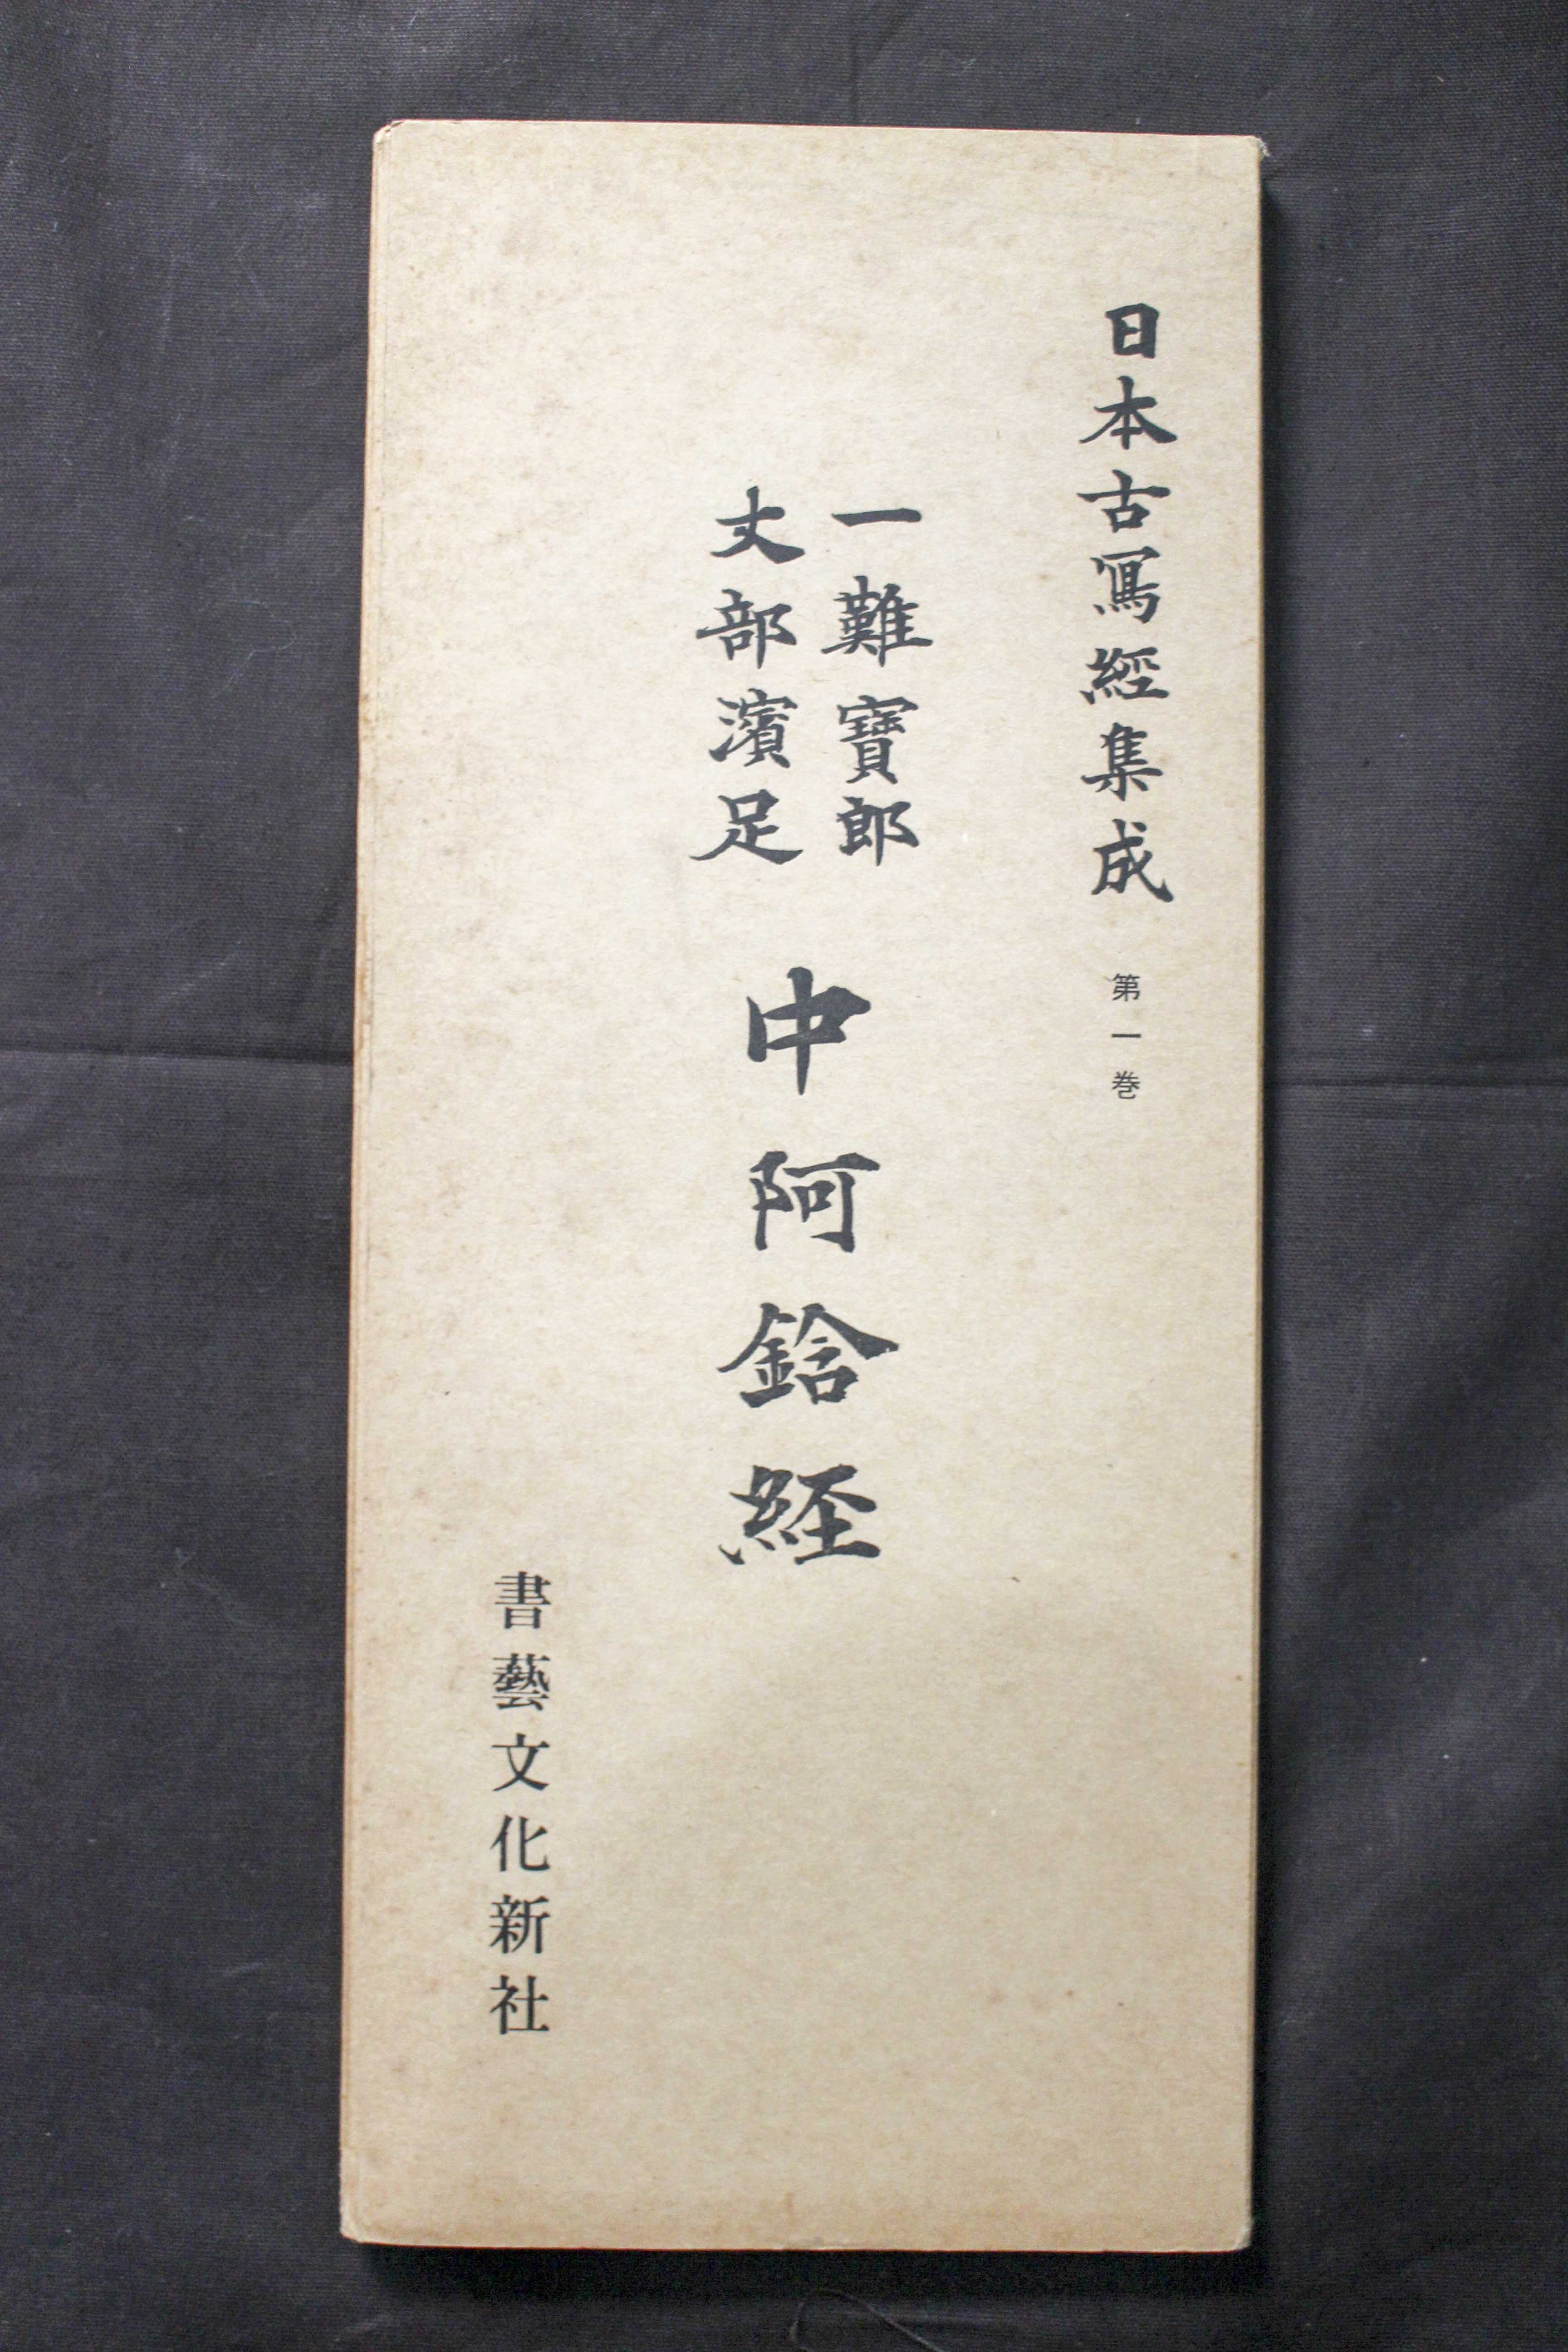 日本古寫經集成 第一巻
一難寶郎
丈部濱足
中阿鋡経
書藝文化新社